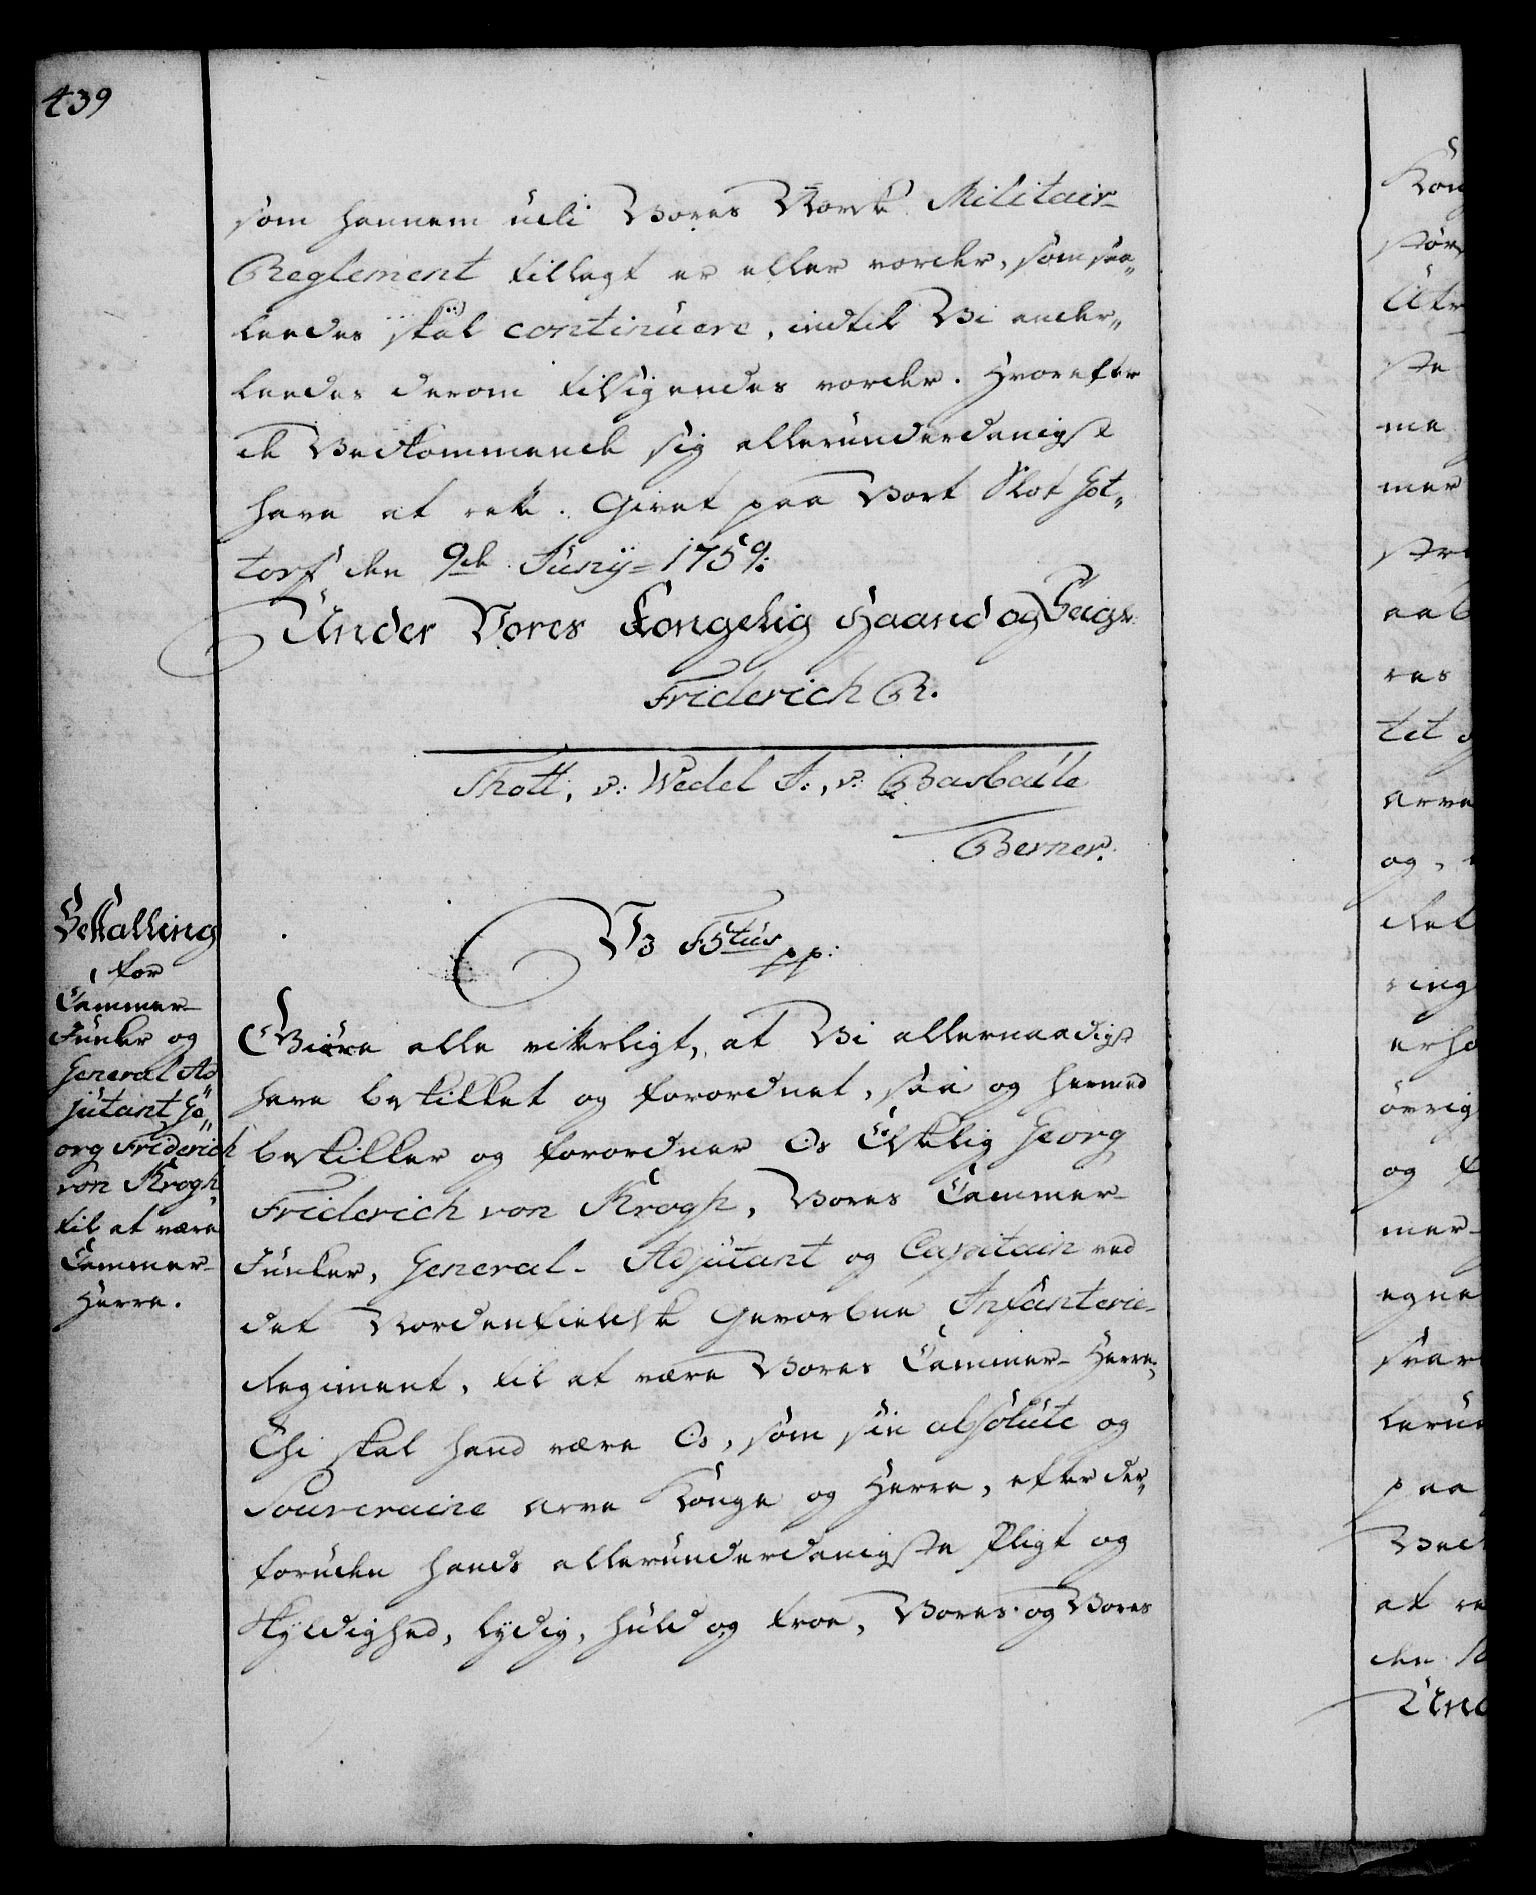 439
som hannem udi Vores Norske Militair-
Reglement tillagt er eller vorder, som saa„
leedes skal continuere, indtil Vi ander„
leedes derom tilsigendes vorder. Hvorefter
de Vedkommende sig allerunderdanigst
have at rette. Givet paa Vort Slot Got„
torf den 9de Junÿ 1759.
Under Vores Kongelig Haand og Seigl.
Friderich R.
Thott, v: Wedel F:, v:
Berner.
Bestalling
for
Cammer-
Junker og
General Ad
jutant Ge„
org Friderich
von Krogh
til at være
Cammer-
Herre.
Vo F5tus pp:
Giöre alle vitterligt, at Vi allernaadigst
have bestillet og forordnet, saa og hermed
bestiller og forordner Os Elskelig Georg
Friderich von Krogh, Vores Cammer-
Junker, General-Adjutant og Capitain ved
det Nordenfieldske Gevorbne Infanterie-
Regiment, til at være Vores Cammer-Herre;
Thi skal hand være Os, som sin absolute og
Souveraine Arve Konge og Herre, efter der„
foruden hands allerunderdanigste Pligt og
Skyldighed, lydig, huld og troe, Vores og Vores
Kong
stör
Utr
ste
me
mer
stri
aab
res
tet o
Arve
og,
det
ring
erho
övrig
og
mer-
egne
svar
lerun
paa
Ved
at re
den
Und